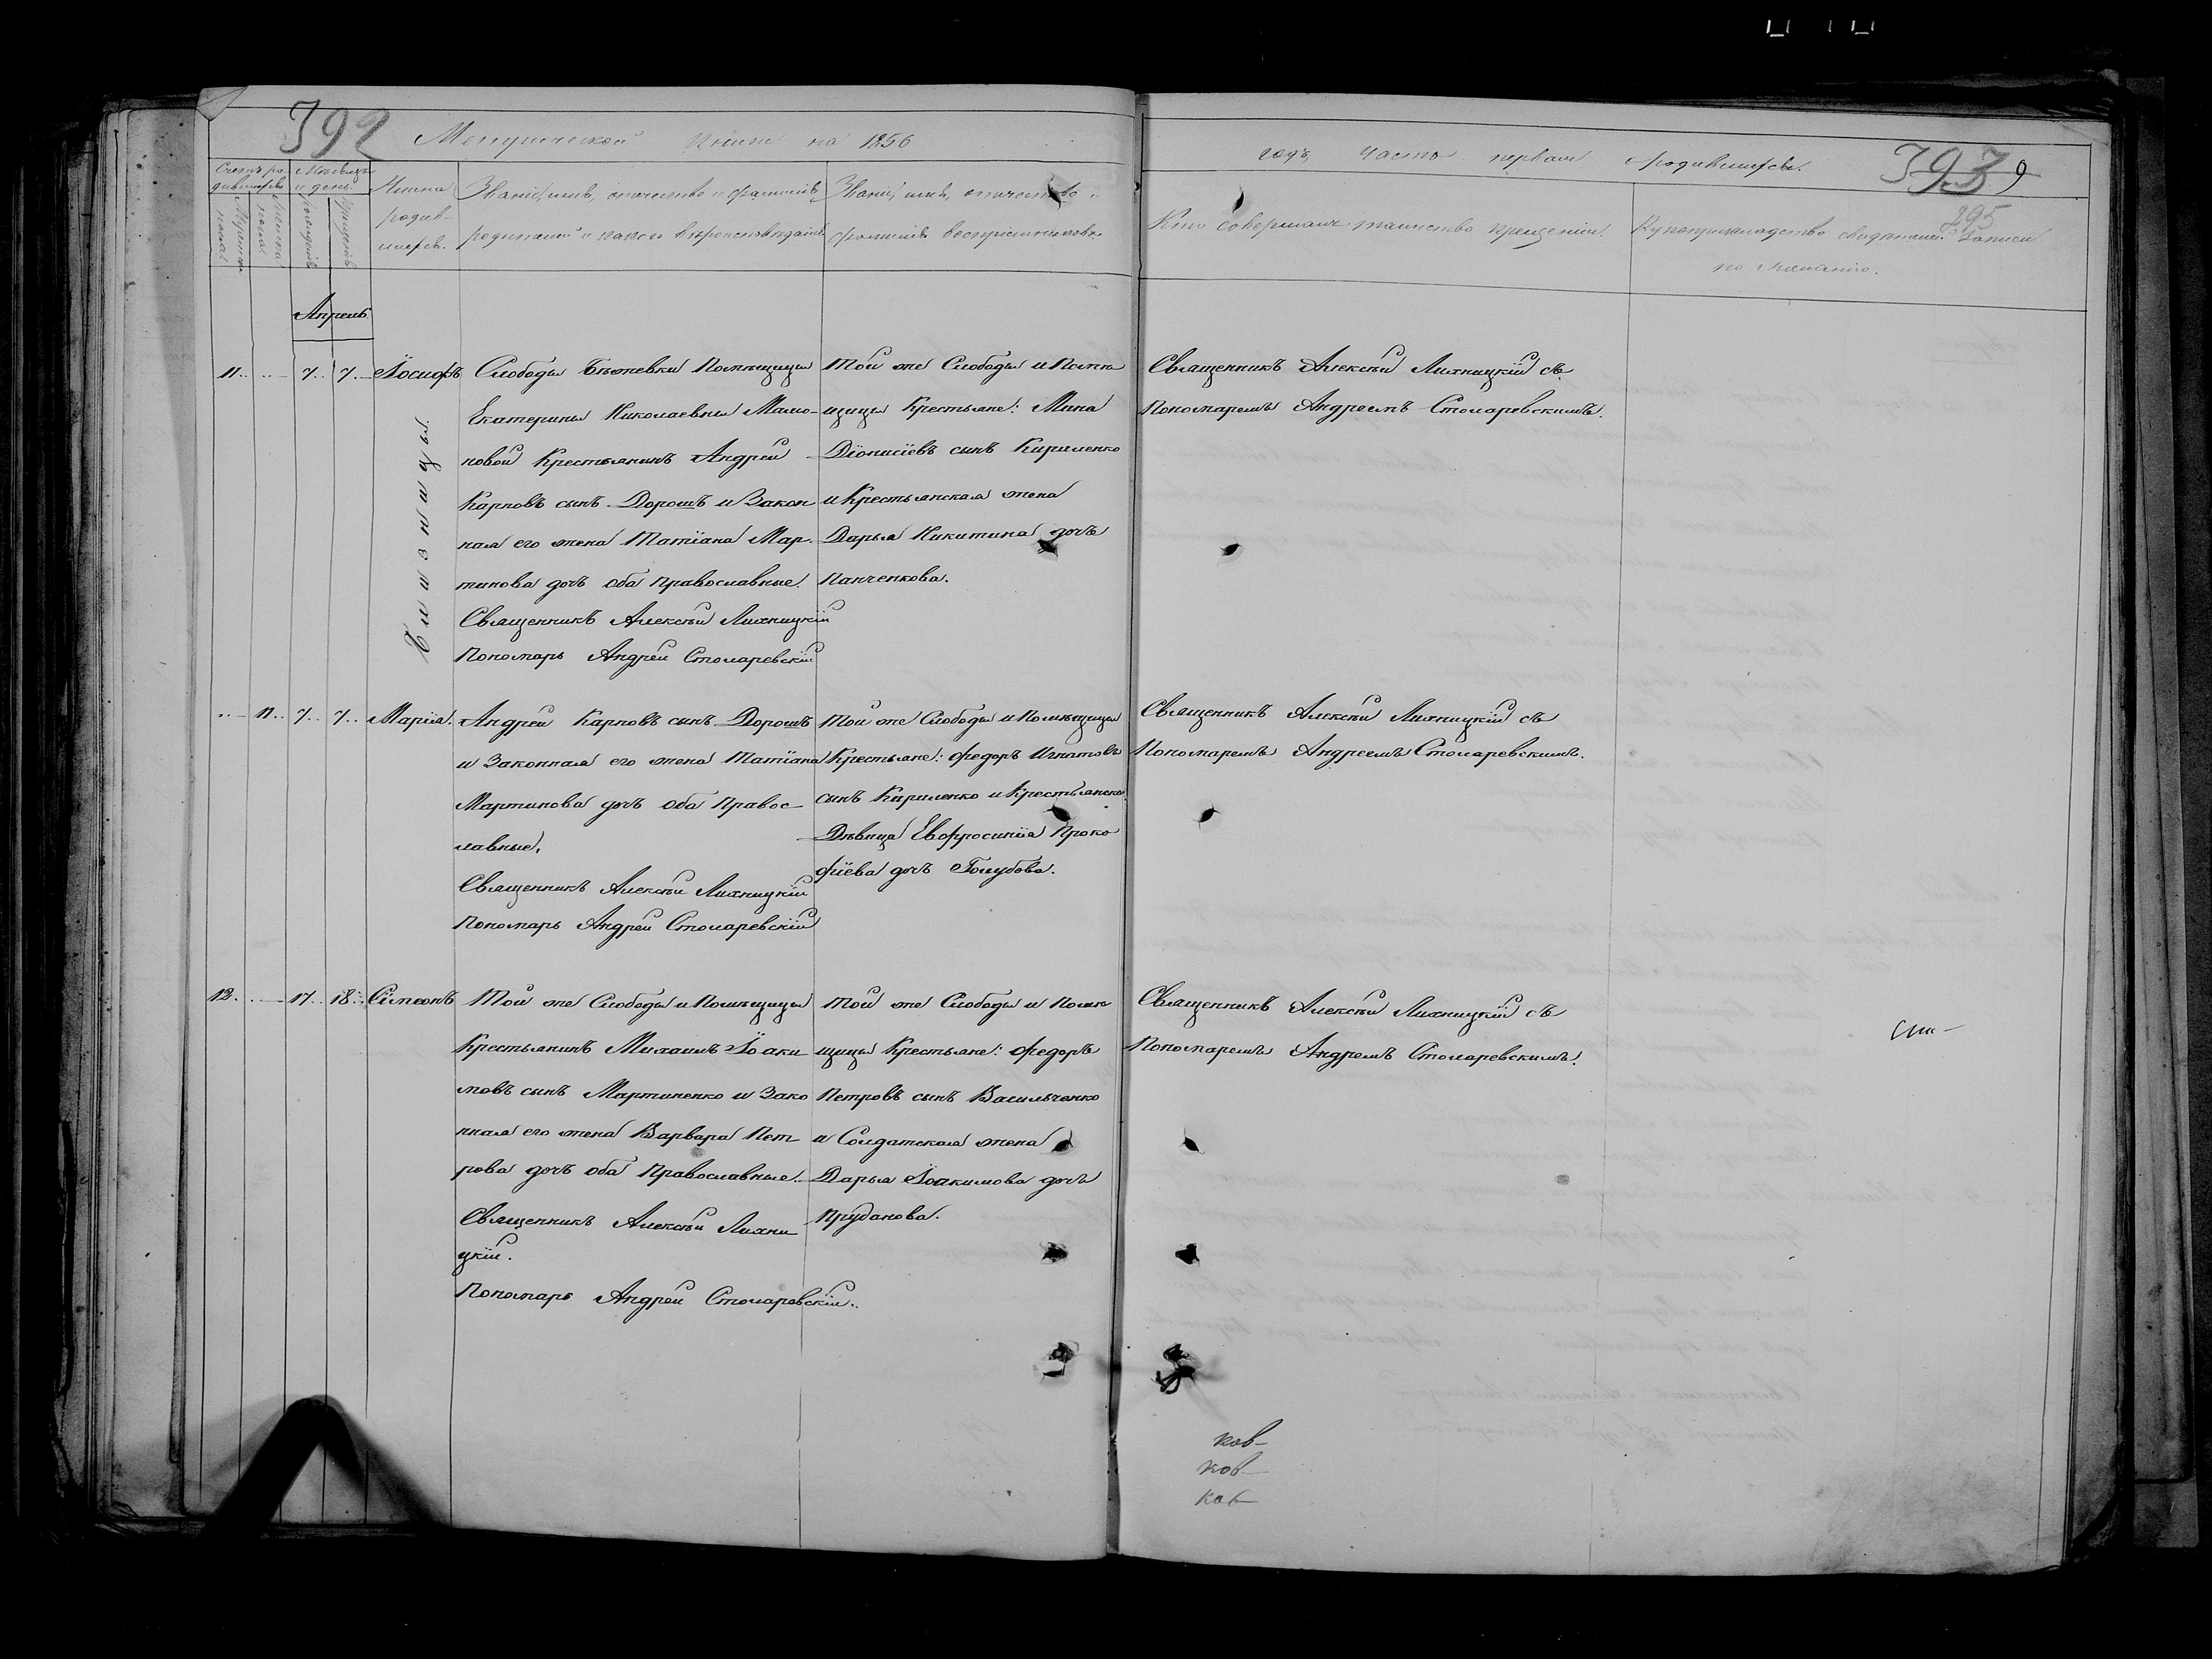 392
Метрической книги на 1856
годъ часть первая о родившихся.
393
9
895
Счетъ ро-
дившихся
Мѣсяцъ
и день
Мужеска
пола
Женска
пола
рожденія
крещенія
Имена
родив-
шихся.
Званіе, имя, отчество и фамилія
родителей и какого вѣроисповѣданія
Званіе, имя, отчество и
фамилія воспріемниковъ
Кто совершалъ таинство крещенія.
Рукоприкладство свидѣтелей записи
по желанію.
Апрель
11. .. 7.. 7.. Іосифъ
близнецы.
Слободы Помѣщицы
Екатерины Николаевны Мамо-
новой Крестьянинъ Андрей
Карповъ сынъ Дорошъ и Закон
ная его жена Татіана Мар-
тинова дочь оба Православные.
Священникъ Алексѣй Лихницкій
Пономарь Андрей Столаревскій
Той же Слободы и Помѣ
щицы Крестьяне: Мина
Діонисіевъ сынъ Кириленко
и Крестьянская жена
Дарья Никитина дочь
Панченкова.
Священникъ Алексѣй Лихницкій съ
Пономаремъ Андреемъ Столаревскимъ.
.. 11.. 7.. 7.. Марія.
Андрей Карповъ сынъ Дорошъ
и Законная его жена Татіана
Мартинова дочь оба Правос-
лавные.
Священникъ Алексѣй Лихницкій
Пономарь Андрей Столаревскій
Той же Слободы и Помѣщицы
Крестьяне: Федоръ Игнатовъ
сынъ Кириленко и Крестьянска
Дѣвица Евфросинія Проко
фіева дочь Голубова.
Священникъ Алексѣй Лихницкій съ
Пономаремъ Андреемъ Столаревскимъ.
12. .. 17.. 18.. Сімеонъ
Той же Слободы и Помѣщицы
Крестьянинъ Михаилъ Іоаки
мовъ сынъ Мартиненко и Зако
нная его жена Варвара Пет
рова дочь оба Православные.
Священникъ Алексѣй Лихни
цкій.
Пономарь Андрей Столаревскій..
Той же Слободы и Помѣ
щицы Крестьяне: Федоръ
Петровъ сынъ Васильченко
и Солдатская жена
Дарья Іоакимова дочь
Пруданова.
Священникъ Алексѣй Лихницкій съ
Пономаремъ Андремъ Столаревскимъ.
ков-
ков-
ков-